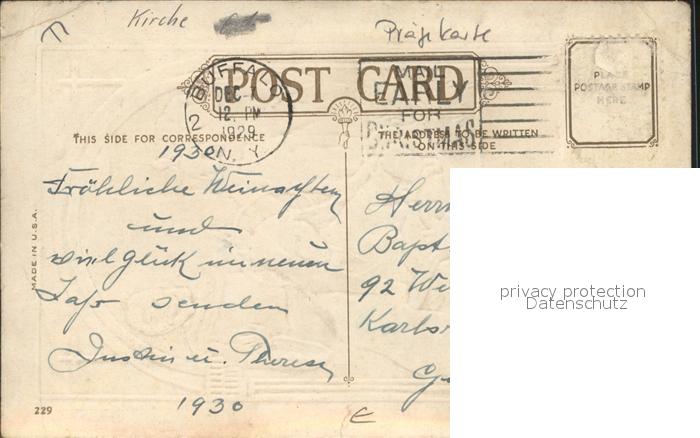 Kirche
Prägekarte
POST CARD
BUFFALO
DEC
2
12. PM
1929
N.Y.
MAIL
EARLY
FOR
CHRISTMAS
PLACE
POSTAGE STAMP
HERE
THIS SIDE FOR CORRESPONDENCE
THE ADDRESS TO BE WRITTEN
ON THIS SIDE
1930
Fröhliche Weinachten
und
viel Glück im neuen
Jahr senden
Justin u. Theresa
1930
Herrn
Bapt
92 Wi
Karls
G
MADE IN U.S.A.
229
E
privacy protection
Datenschutz